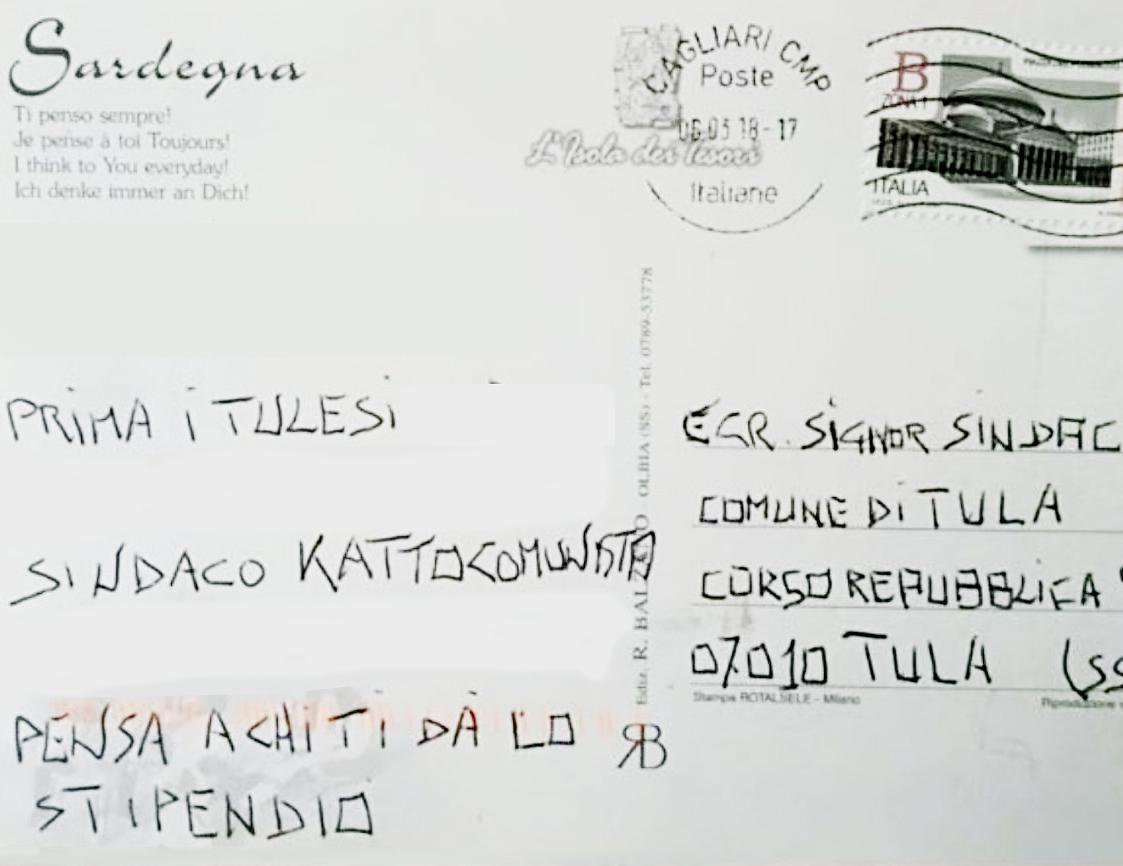 Sardegna
Ti penso sempre!
Je pense à toi Toujours!
I think to You everyday!
Ich denke immer an Dich!
CAGLIARI CMP
Poste
06.03 18-17
L'Isola dei Tesori
Italiane
B
ZONA 1
ITALIA
PRIMA I TULESI
SINDACO KATTOCOMUNISTA
PENSA A CHI TI DÀ LO
STIPENDIO
Ediz. R. BALZANO - OLBIA (SS) - Tel. 0789-53778
RB
EGR. SIGNOR SINDAC
COMUNE DI TULA
CORSO REPUBBLICA
07010 TULA (SS
Stampa ROTALSELE - Milano
Riproduzione